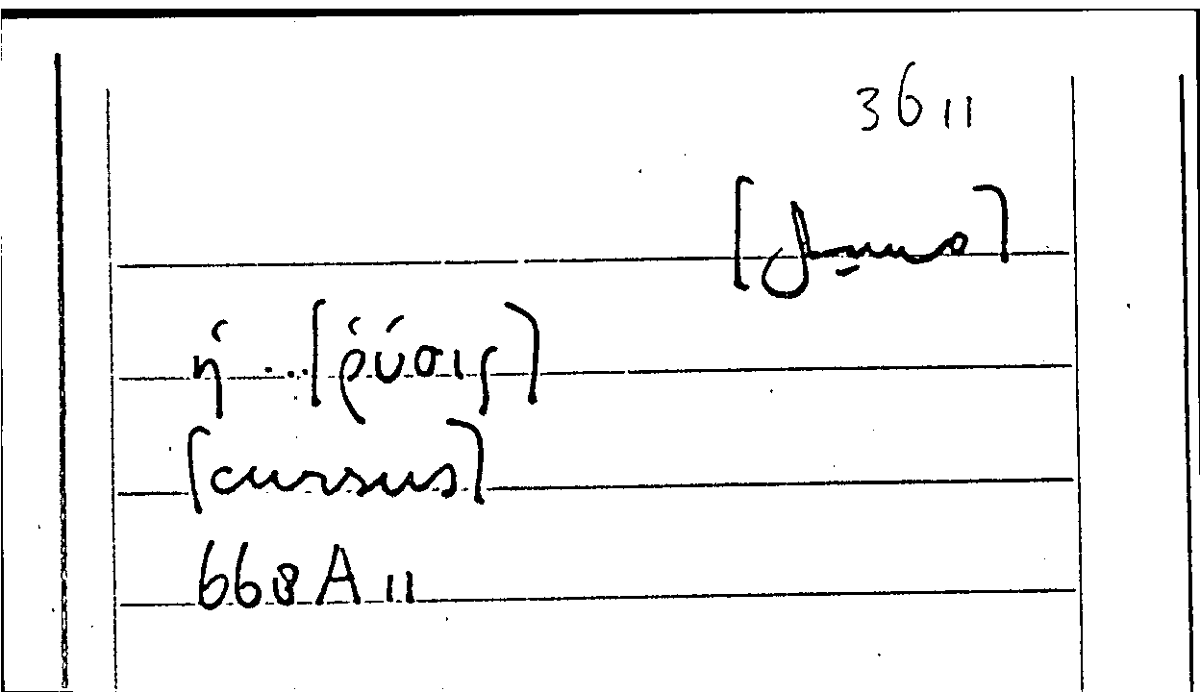 36 11
ἡ ... [ῥύσις]
[cursus]
668 A 11